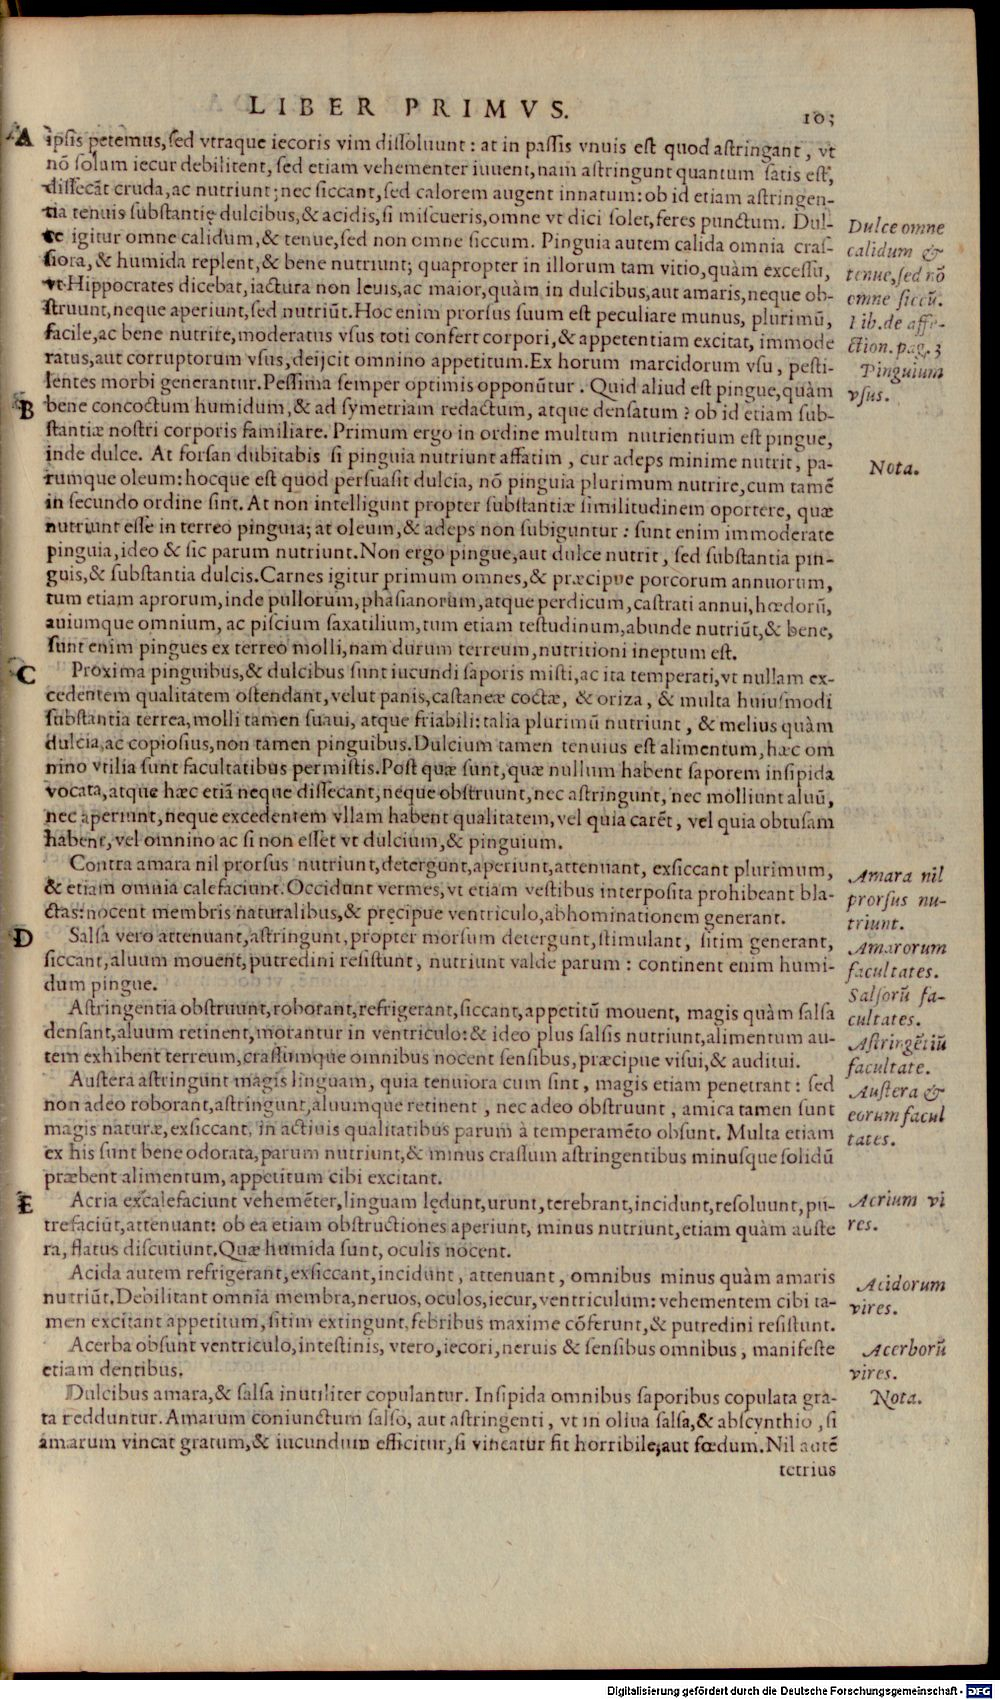 LIBER PRIMVS.
103
A
ipsis petemus, sed vtraque iecoris vim dissoluunt: at in passis vnuis est quod astringant, vt
nõ solum iecur debilitent, sed etiam vehementer iuuent, nam astringunt quantum satis est,
dissecãt cruda, ac nutriunt; nec siccant, sed calorem augent innatum: ob id etiam astringen-
tia tenuis substantię dulcibus, & acidis, si miscueris, omne vt dici solet, feres punctum. Dul-
ce igitur omne calidum, & tenue, sed non omne siccum. Pinguia autem calida omnia cras-
siora, & humida replent, & bene nutriunt; quapropter in illorum tam vitio, quàm excessu,
vt Hippocrates dicebat, iactura non leuis, ac maior, quàm in dulcibus, aut amaris, neque ob-
struunt, neque aperiunt, sed nutriũt. Hoc enim prorsus suum est peculiare munus, plurimũ,
facile, ac bene nutrire, moderatus vsus toti confert corpori, & appetentiam excitat, immode
ratus, aut corruptorum vsus, deijcit omnino appetitum. Ex horum marcidorum vsu, pesti-
lentes morbi generantur. Pessima semper optimis opponũtur. Quid aliud est pingue, quàm
B
bene concoctum humidum, & ad symetriam redactum, atque densatum? ob id etiam sub-
stantiæ nostri corporis familiare. Primum ergo in ordine multum nutrientium est pingue,
inde dulce. At forsan dubitabis si pinguia nutriunt affatim, cur adeps minime nutrit, pa-
rumque oleum: hocque est quod persuasit dulcia, nõ pinguia plurimum nutrire, cum tamẽ
in secundo ordine sint. At non intelligunt propter substantiæ similitudinem oportere, quæ
nutriunt esse in terreo pinguia; at oleum, & adeps non subiguntur: sunt enim immoderate
pinguia, ideo & sic parum nutriunt. Non ergo pingue, aut dulce nutrit, sed substantia pin-
guis, & substantia dulcis. Carnes igitur primum omnes, & præcipue porcorum annuorum,
tum etiam aprorum, inde pullorum, phasianorum, atque perdicum, castrati annui, hœdorũ,
auiumque omnium, ac piscium saxatilium, tum etiam testudinum, abunde nutriũt, & bene,
sunt enim pingues ex terreo molli, nam durum terreum, nutritioni ineptum est.
C
Proxima pinguibus, & dulcibus sunt iucundi saporis misti, ac ita temperati, vt nullam ex-
cedentem qualitatem ostendant, velut panis, castaneæ coctæ, & oriza, & multa huiusmodi
substantia terrea, molli tamen suaui, atque friabili: talia plurimũ nutriunt, & melius quàm
dulcia, ac copiosius, non tamen pinguibus. Dulcium tamen tenuius est alimentum, hæc om
nino vtilia sunt facultatibus permistis. Post quæ sunt, quæ nullum habent saporem insipida
vocata, atque hæc etiã neque dissecant, neque obstruunt, nec astringunt, nec molliunt aluũ,
nec aperiunt, neque excedentem vllam habent qualitatem, vel quia carẽt, vel quia obtusam
habent, vel omnino ac si non esset vt dulcium, & pinguium.
Contra amara nil prorsus nutriunt, detergunt, aperiunt, attenuant, exsiccant plurimum,
& etiam omnia calefaciunt. Occidunt vermes, vt etiam vestibus interposita prohibeant bla-
ctas: nocent membris naturalibus, & pręcipue ventriculo, abhominationem generant.
D
Salsa vero attenuant, astringunt, propter morsum detergunt, stimulant, sitim generant,
siccant, aluum mouent, putredini resistunt, nutriunt valde parum: continent enim humi-
dum pingue.
Astringentia obstruunt, roborant, refrigerant, siccant, appetitũ mouent, magis quàm salsa
densant, aluum retinent, morantur in ventriculo: & ideo plus salsis nutriunt, alimentum au-
tem exhibent terreum, crassumque omnibus nocent sensibus, præcipue visui, & auditui.
Austera astringunt magis linguam, quia tenuiora cum sint, magis etiam penetrant: sed
non adeo roborant, astringunt, aluumque retinent, nec adeo obstruunt, amica tamen sunt
magis naturæ, exsiccant, in actiuis qualitatibus parum à temperamẽto obsunt. Multa etiam
ex his sunt bene odorata, parum nutriunt, & minus crassum astringentibus minusque solidũ
præbent alimentum, appetitum cibi excitant.
E
Acria excalefaciunt vehemẽter, linguam lędunt, urunt, terebrant, incidunt, resoluunt, pu-
trefaciũt, attenuant: ob ea etiam obstructiones aperiunt, minus nutriunt, etiam quàm auste
ra, flatus discutiunt. Quæ humida sunt, oculis nocent.
Acida autem refrigerant, exsiccant, incidunt, attenuant, omnibus minus quàm amaris
nutriũt. Debilitant omnia membra, neruos, oculos, iecur, ventriculum: vehementem cibi ta-
men excitant appetitum, sitim extingunt, febribus maxime cõferunt, & putredini resistunt.
Acerba obsunt ventriculo, intestinis, vtero, iecori, neruis & sensibus omnibus, manifeste
etiam dentibus.
Dulcibus amara, & salsa inutiliter copulantur. Insipida omnibus saporibus copulata gra-
ta redduntur. Amarum coniunctum salso, aut astringenti, vt in oliua salsa, & abscynthio, si
amarum vincat gratum, & iucundum efficitur, si vincatur fit horribile, aut fœdum. Nil autẽ
tetrius
Dulce omne
calidum &
tenue, sed nõ
omne siccũ.
Lib. de affe-
ction. pag. 3
Pinguium
vsus.
Nota.
Amara nil
prorsus nu-
triunt.
Amarorum
facultates.
Salsorũ fa-
cultates.
Astringẽtiũ
facultate.
Austera &
eorum facul
tates.
Acrium vi
res.
Acidorum
vires.
Acerborũ
vires.
Nota.
Digitalisierung gefördert durch die Deutsche Forschungsgemeinschaft - DFG